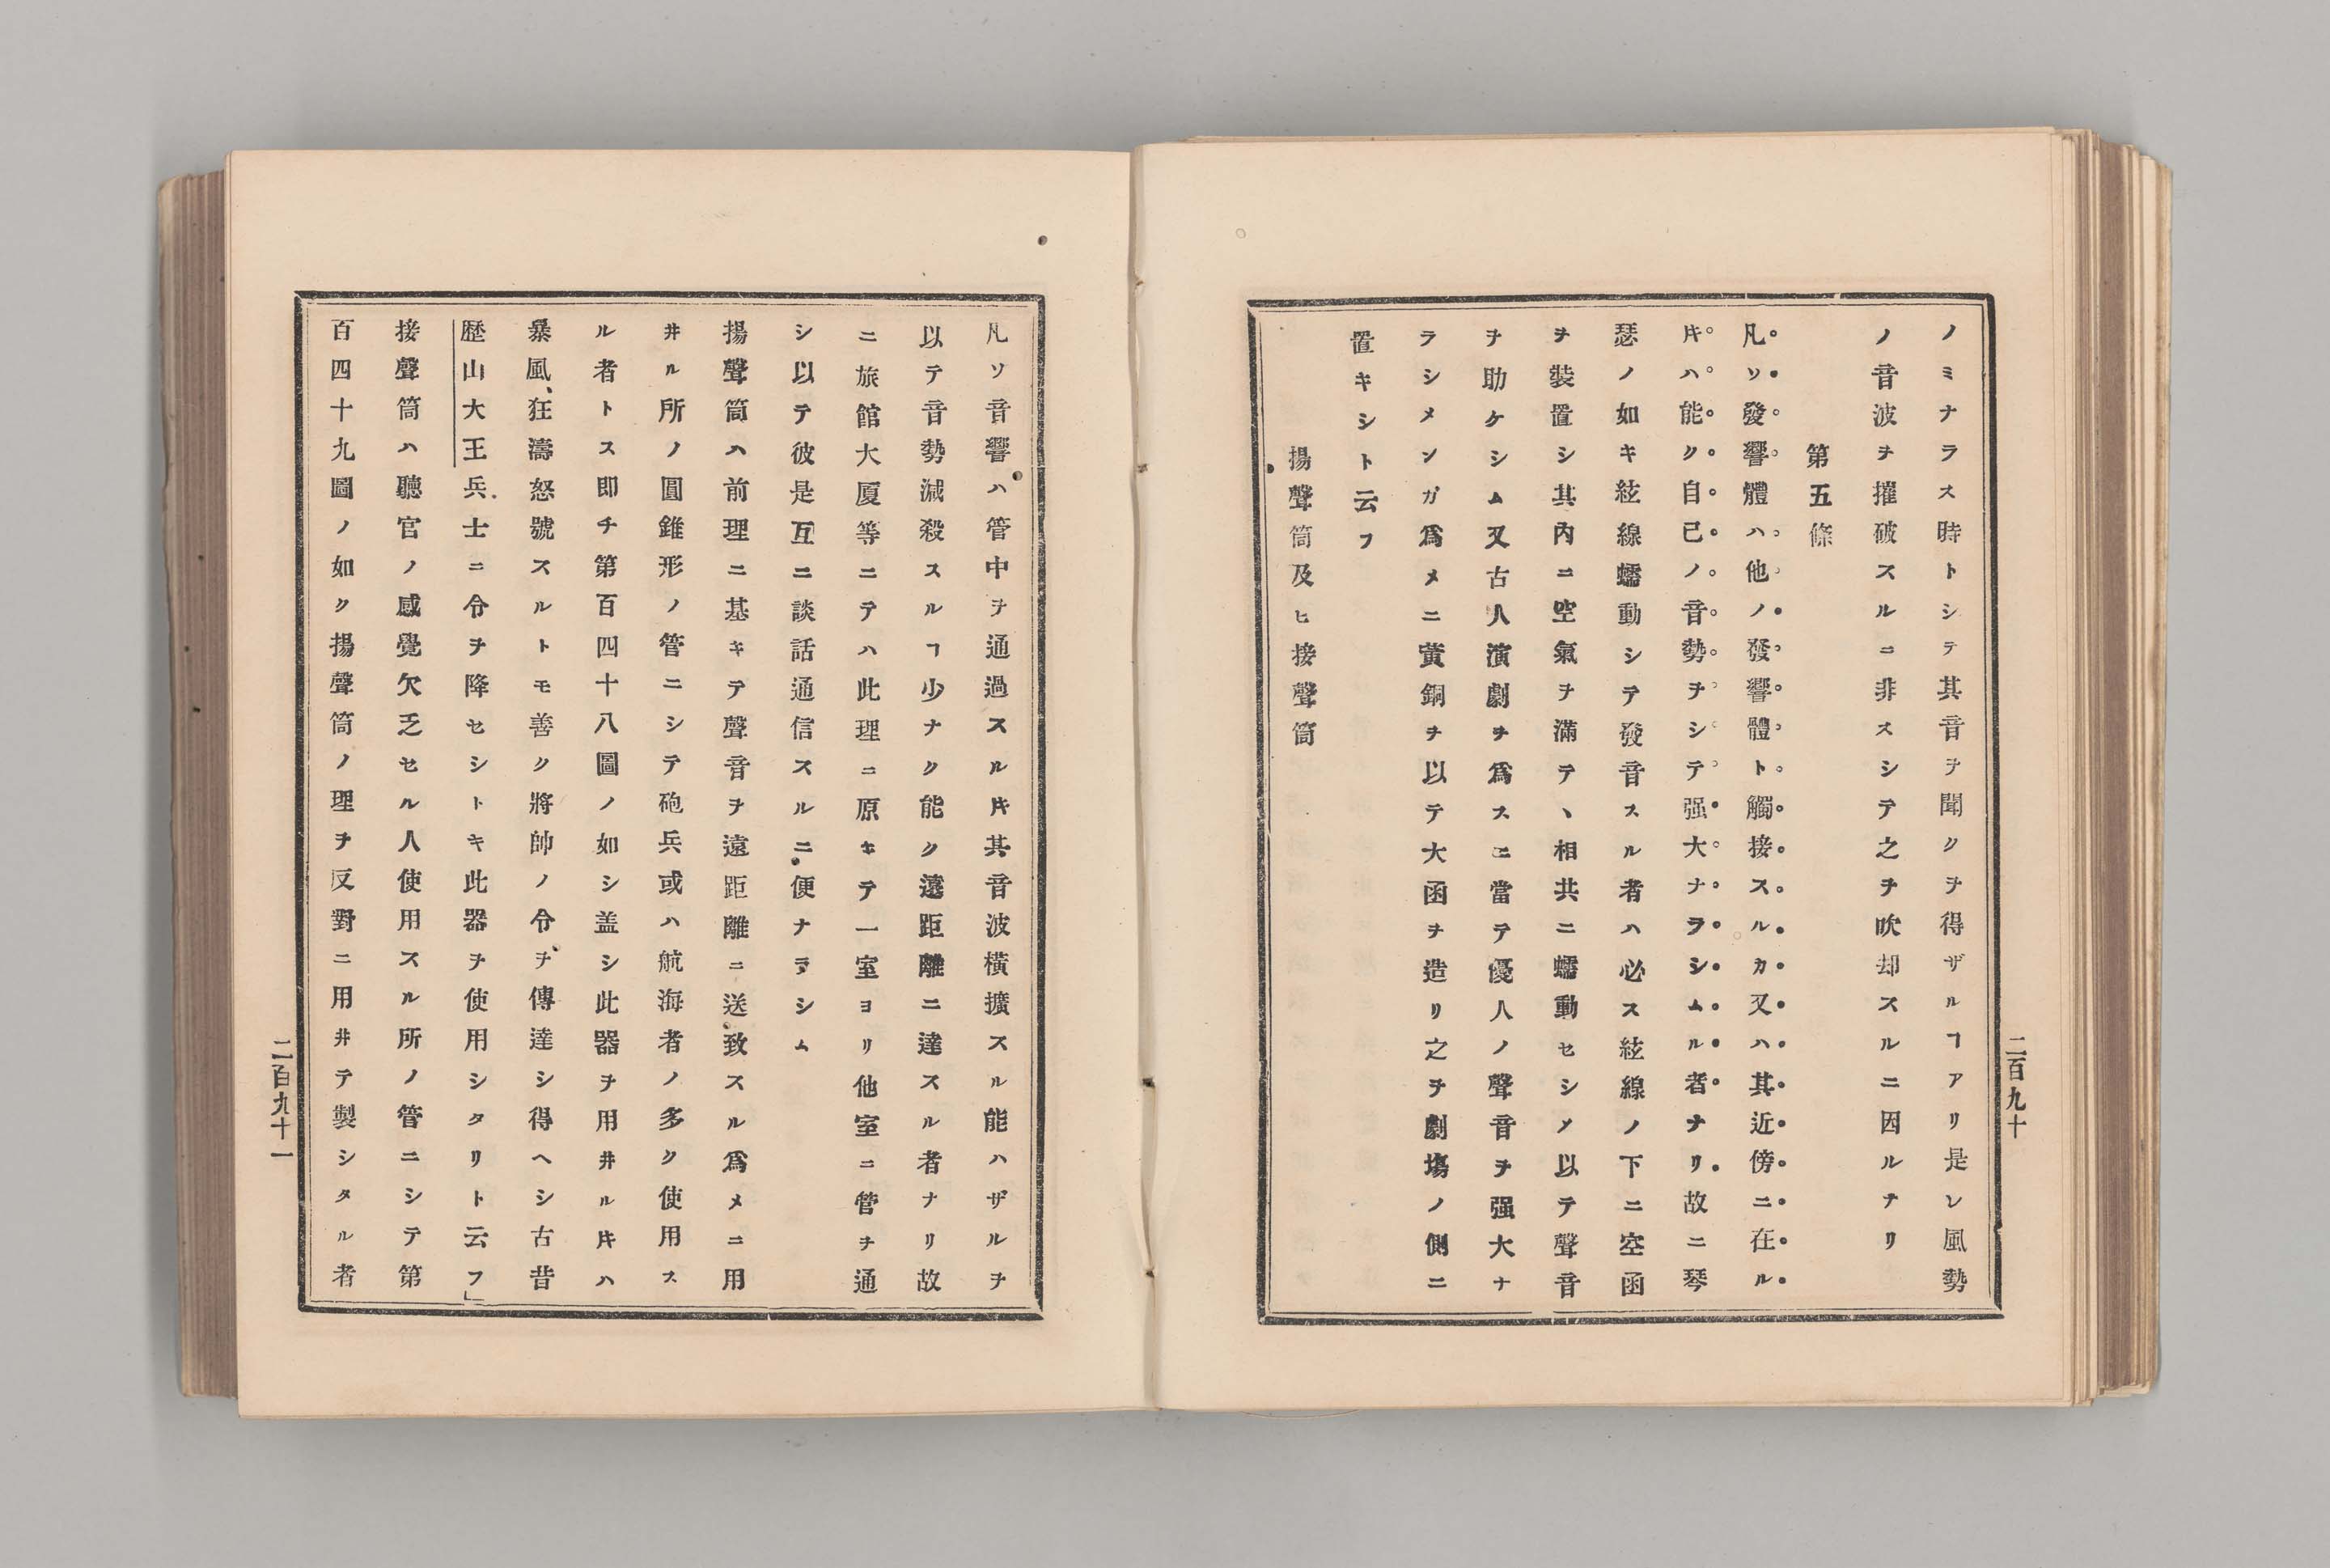 ノミナラス時トシテ其音ヲ聞クヲ得ザルヿアリ是レ風勢
ノ音波ヲ摧破スルニ非スシテ之ヲ吹却スルニ因ルナリ
第五條
凡ソ發響體ハ他ノ發響體ト觸接スルカ又ハ其近傍ニ在ル
𪜈ハ能ク自己ノ音勢ヲシテ强大ナラシムル者ナリ故ニ琴
瑟ノ如キ絃線蠕動シテ發音スル者ハ必ス絃線ノ下ニ空函
ヲ裝置シ其內ニ空氣ヲ滿テヽ相共ニ蠕動セシメ以テ聲音
ヲ助ケシム又古人演劇ヲ爲スニ當テ優人ノ聲音ヲ强大ナ
ラシメンガ爲メニ黃銅ヲ以テ大函ヲ造リ之ヲ劇塲ノ側ニ
置キシト云フ
揚聲筒及ヒ接聲筒
二百九十
凡ソ音響ハ管中ヲ通過スル𪜈其音波橫擴スル能ハザルヲ
以テ音勢減殺スルヿ少ナク能ク遠距離ニ達スル者ナリ故
ニ旅館大厦等ニテハ此理ニ原キテ一室ヨリ他室ニ管ヲ通
シ以テ彼是互ニ談話通信スルニ便ナラシム
揚聲筒ハ前理ニ基キテ聲音ヲ遠距離ニ送致スル爲メニ用
井ル所ノ圓錐形ノ管ニシテ砲兵或ハ航海者ノ多ク使用ス
ル者トス即チ第百四十八圖ノ如シ盖シ此器ヲ用井ル𪜈ハ
暴風、狂濤怒號スルトモ善ク將帥ノ令ヲ傳達シ得ヘシ古昔
歴山大王兵士ニ令ヲ降セシトキ此器ヲ使用シタリト云フ」
接聲筒ハ聽官ノ感覺欠乏セル人使用スル所ノ管ニシテ第
百四十九圖ノ如ク揚聲筒ノ理ヲ反對ニ用井テ製シタル者
二百九十一